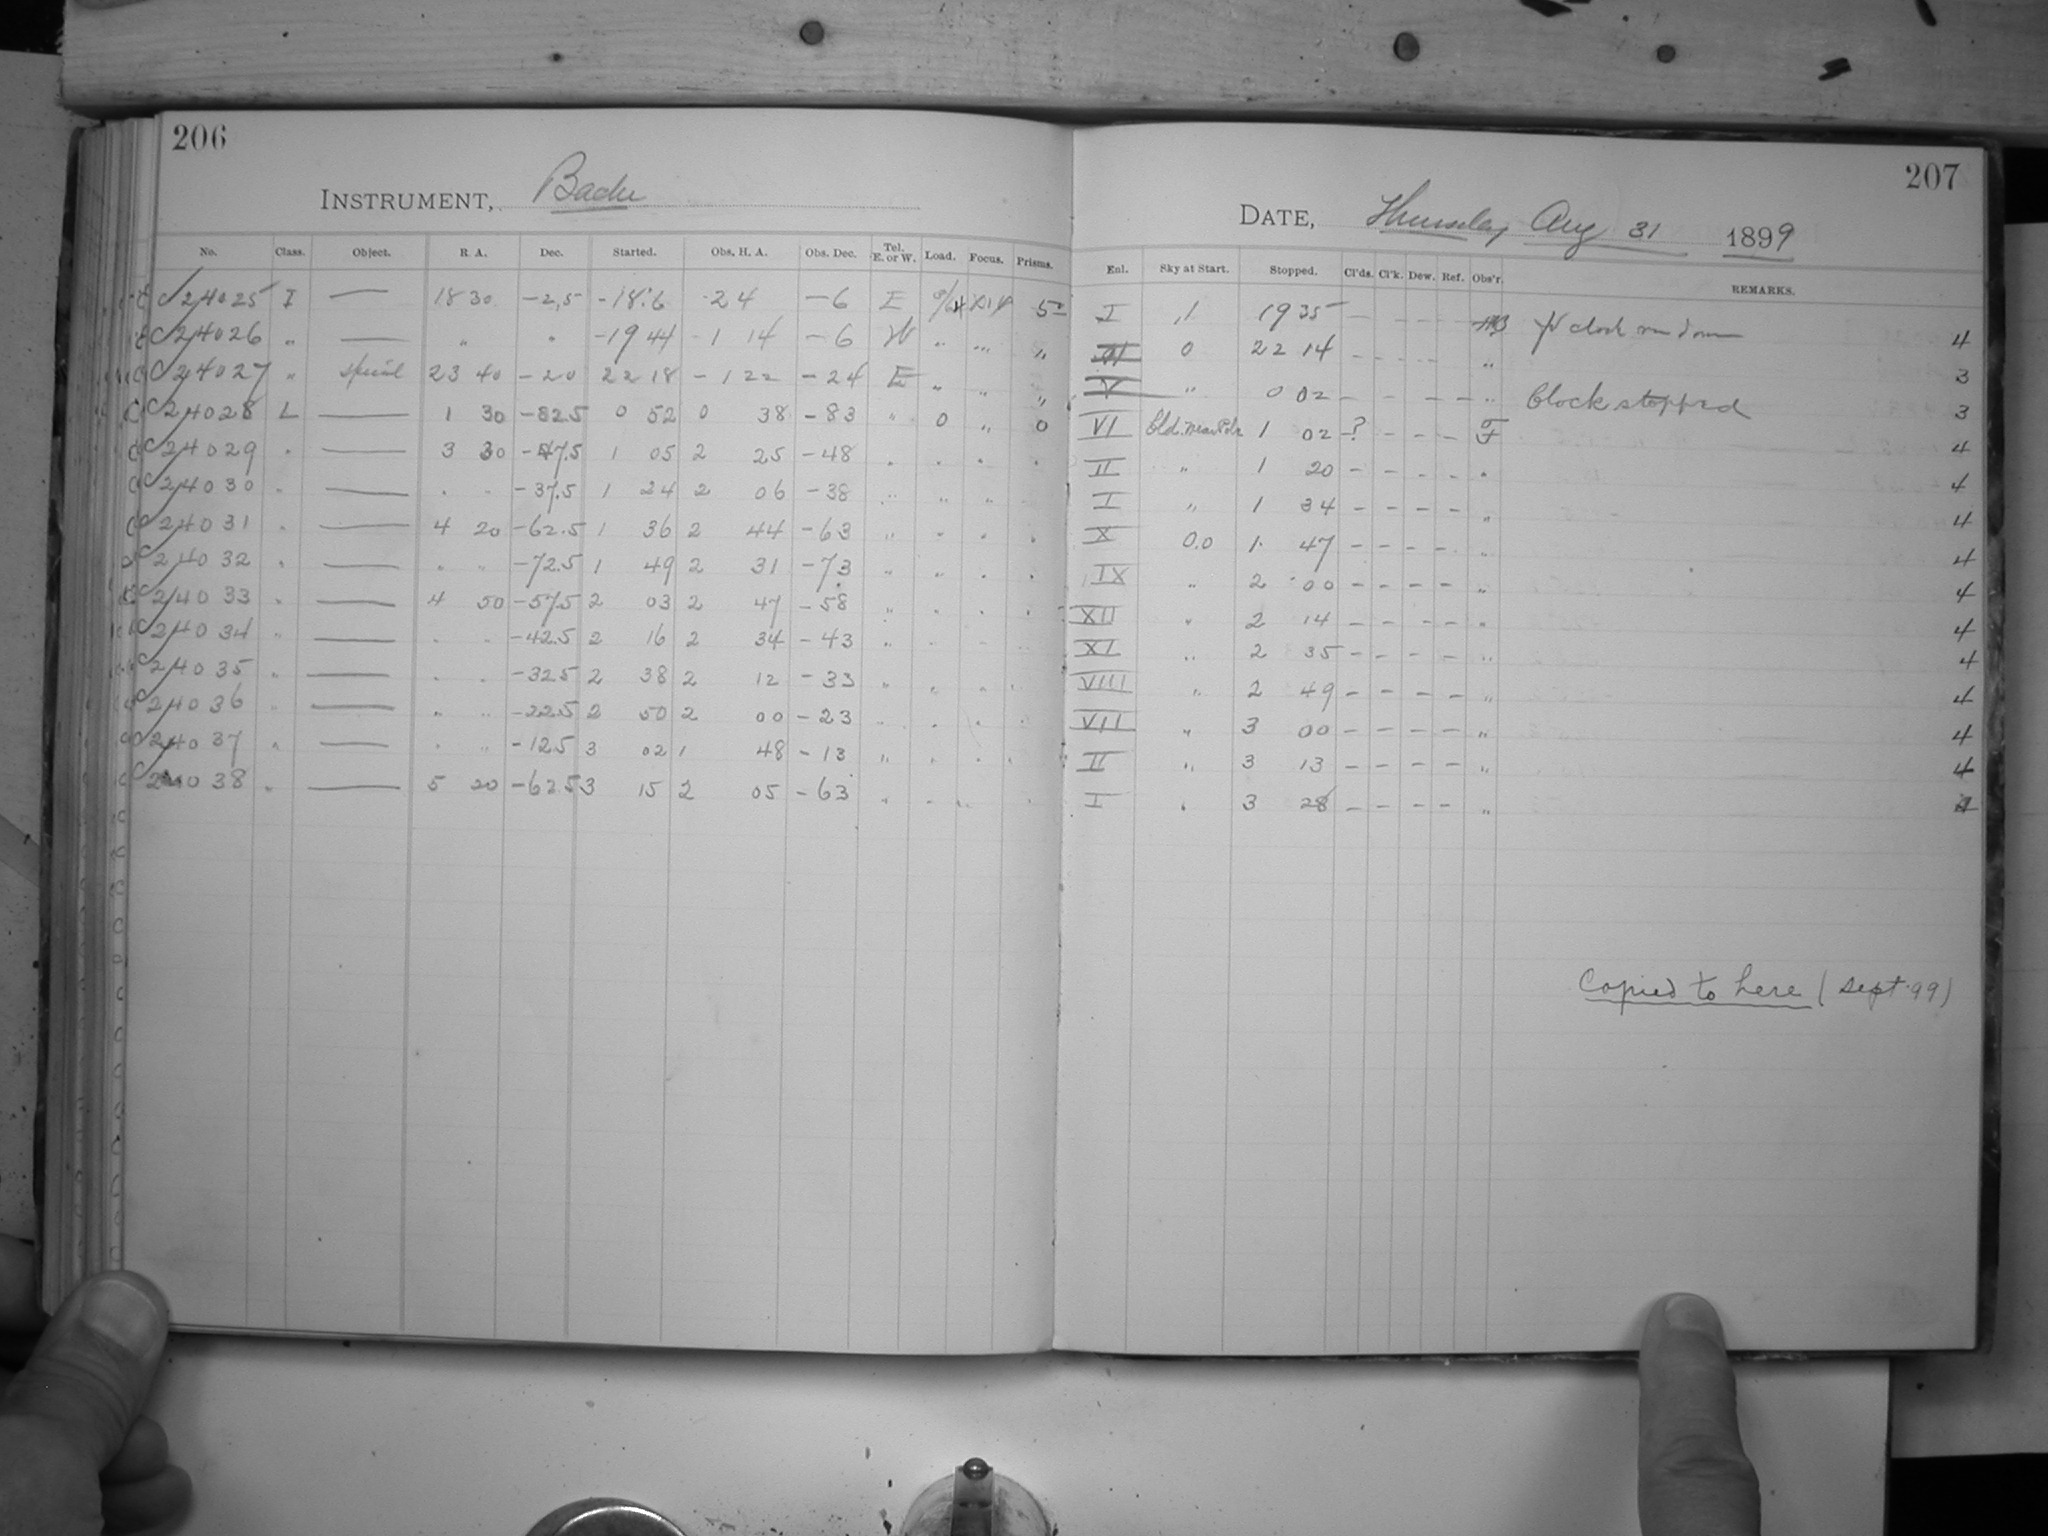 206
INSTRUMENT, Bache
No. Class. Object. R. A. Dec. Started. Obs. H. A. Obs. Dec. Tel. E. or W. Load. Focus. Prisms.
C 24025 I — 18 30 -2.5 -6 E 5
C 24026 " — " " 19 44 -1 14 -6 W " " "
C 24027 " special 23 40 -20 22 18 -1 22 -24 E " " "
C 24028 L — 1 30 -82.5 0 52 0 38 -83 " 0 " 0
C 24029 " — 3 30 -47.5 1 05 2 25 -48 " " " "
C 24030 " — " " -37.5 1 24 2 06 -38 " " " "
C 24031 " — 4 20 -62.5 1 36 2 44 -63 " " " "
C 24032 " — " " -72.5 1 49 2 31 -73 " " " "
C 24033 " — 4 50 -57.5 2 03 2 47 -58 " " " "
C 24034 " — " " -42.5 2 16 2 34 -43 " " " "
C 24035 " — " " -32.5 2 38 2 12 -33 " " " "
C 24036 " — " " -22.5 2 50 2 00 -23 " " " "
C 24037 " — " " -12.5 3 02 1 48 -13 " " " "
C 24038 " — 5 20 -62.5 3 15 2 05 -63 " " " "
207
DATE, Thursday Aug 31 1899
Enl. Sky at Start. Stopped. Cl'ds. Cl'k. Dew. Ref. Obs'r. REMARKS.
I 1 19 35 — — — — clock run down 4
0 22 14 — — — — " 3
V " 0 02 — — — — " Clock stopped 3
VI Cld. near Pole 1 02 ? — — — F 4
II " 1 20 — — — — " 4
I " 1 34 — — — — " 4
X 0.0 1 47 — — — — " 4
IX " 2 00 — — — — " 4
XII " 2 14 — — — — " 4
XI " 2 35 — — — — " 4
VIII " 2 49 — — — — " 4
VII " 3 00 — — — — " 4
II " 3 13 — — — — " 4
I " 3 28 — — — — " 4
Copied to here (Sept. 99)